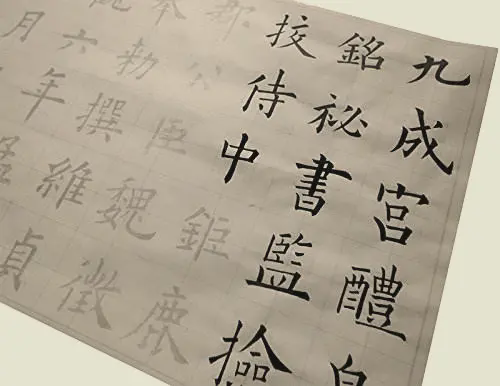 九成宮醴
銘祕書監撿
挍侍中鉅鹿
郡公臣魏徵
奉勅撰維貞
六年孟
月